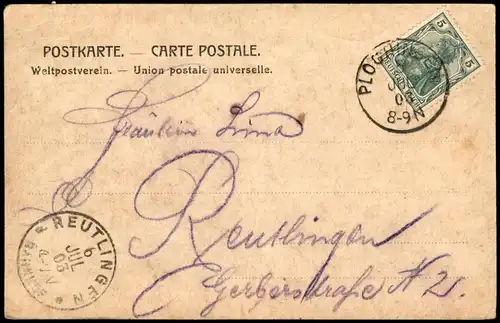 POSTKARTE. — CARTE POSTALE.
Weltpostverein. — Union postale universelle.
5 5
PLOCH
JUL
05
8-9N
Fräulein Lina
Reutlingen
Gerberstraße N 2.
REUTLINGEN
6
JUL
05
BAHNHOF